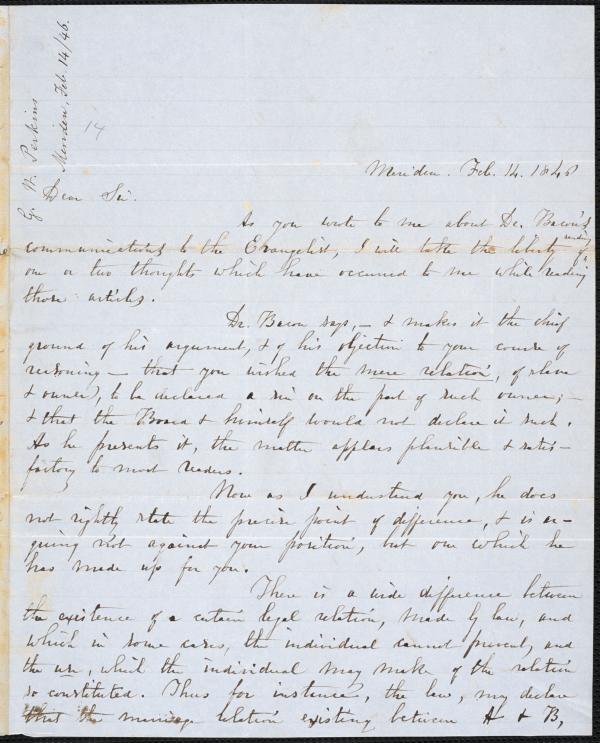 G. W. Perkins
Meriden, Feb. 14/46.
14
Meriden. Feb. 14. 1846
Dear Sir.
As you wrote to me about Dr. Bacon's
communications to the Evangelist, I will take the liberty of sending
one or two thoughts which have occurred to me while reading
those articles.
Dr. Bacon says, – & makes it the chief
ground of his argument, & of his objection to your course of
reasoning – that you wished the mere relation, of slave
& owner), to be declared a sin on the part of such owner; –
& that the Board & himself would not declare it such.
As he presents it, the matter appears plausible & satis-
factory to most readers.
Now as I understand you, he does
not rightly state the precise point of difference, & is ar-
guing not against your position, but one which he
has made up for you.
There is a wide difference between
the existence of a certain legal relation, made by law, and
which in some cases, the individual cannot prevent, and
the use, which the individual may make of the relation
so constituted. Thus for instance, the law, may declare
that the marriage relation existing between A & B,